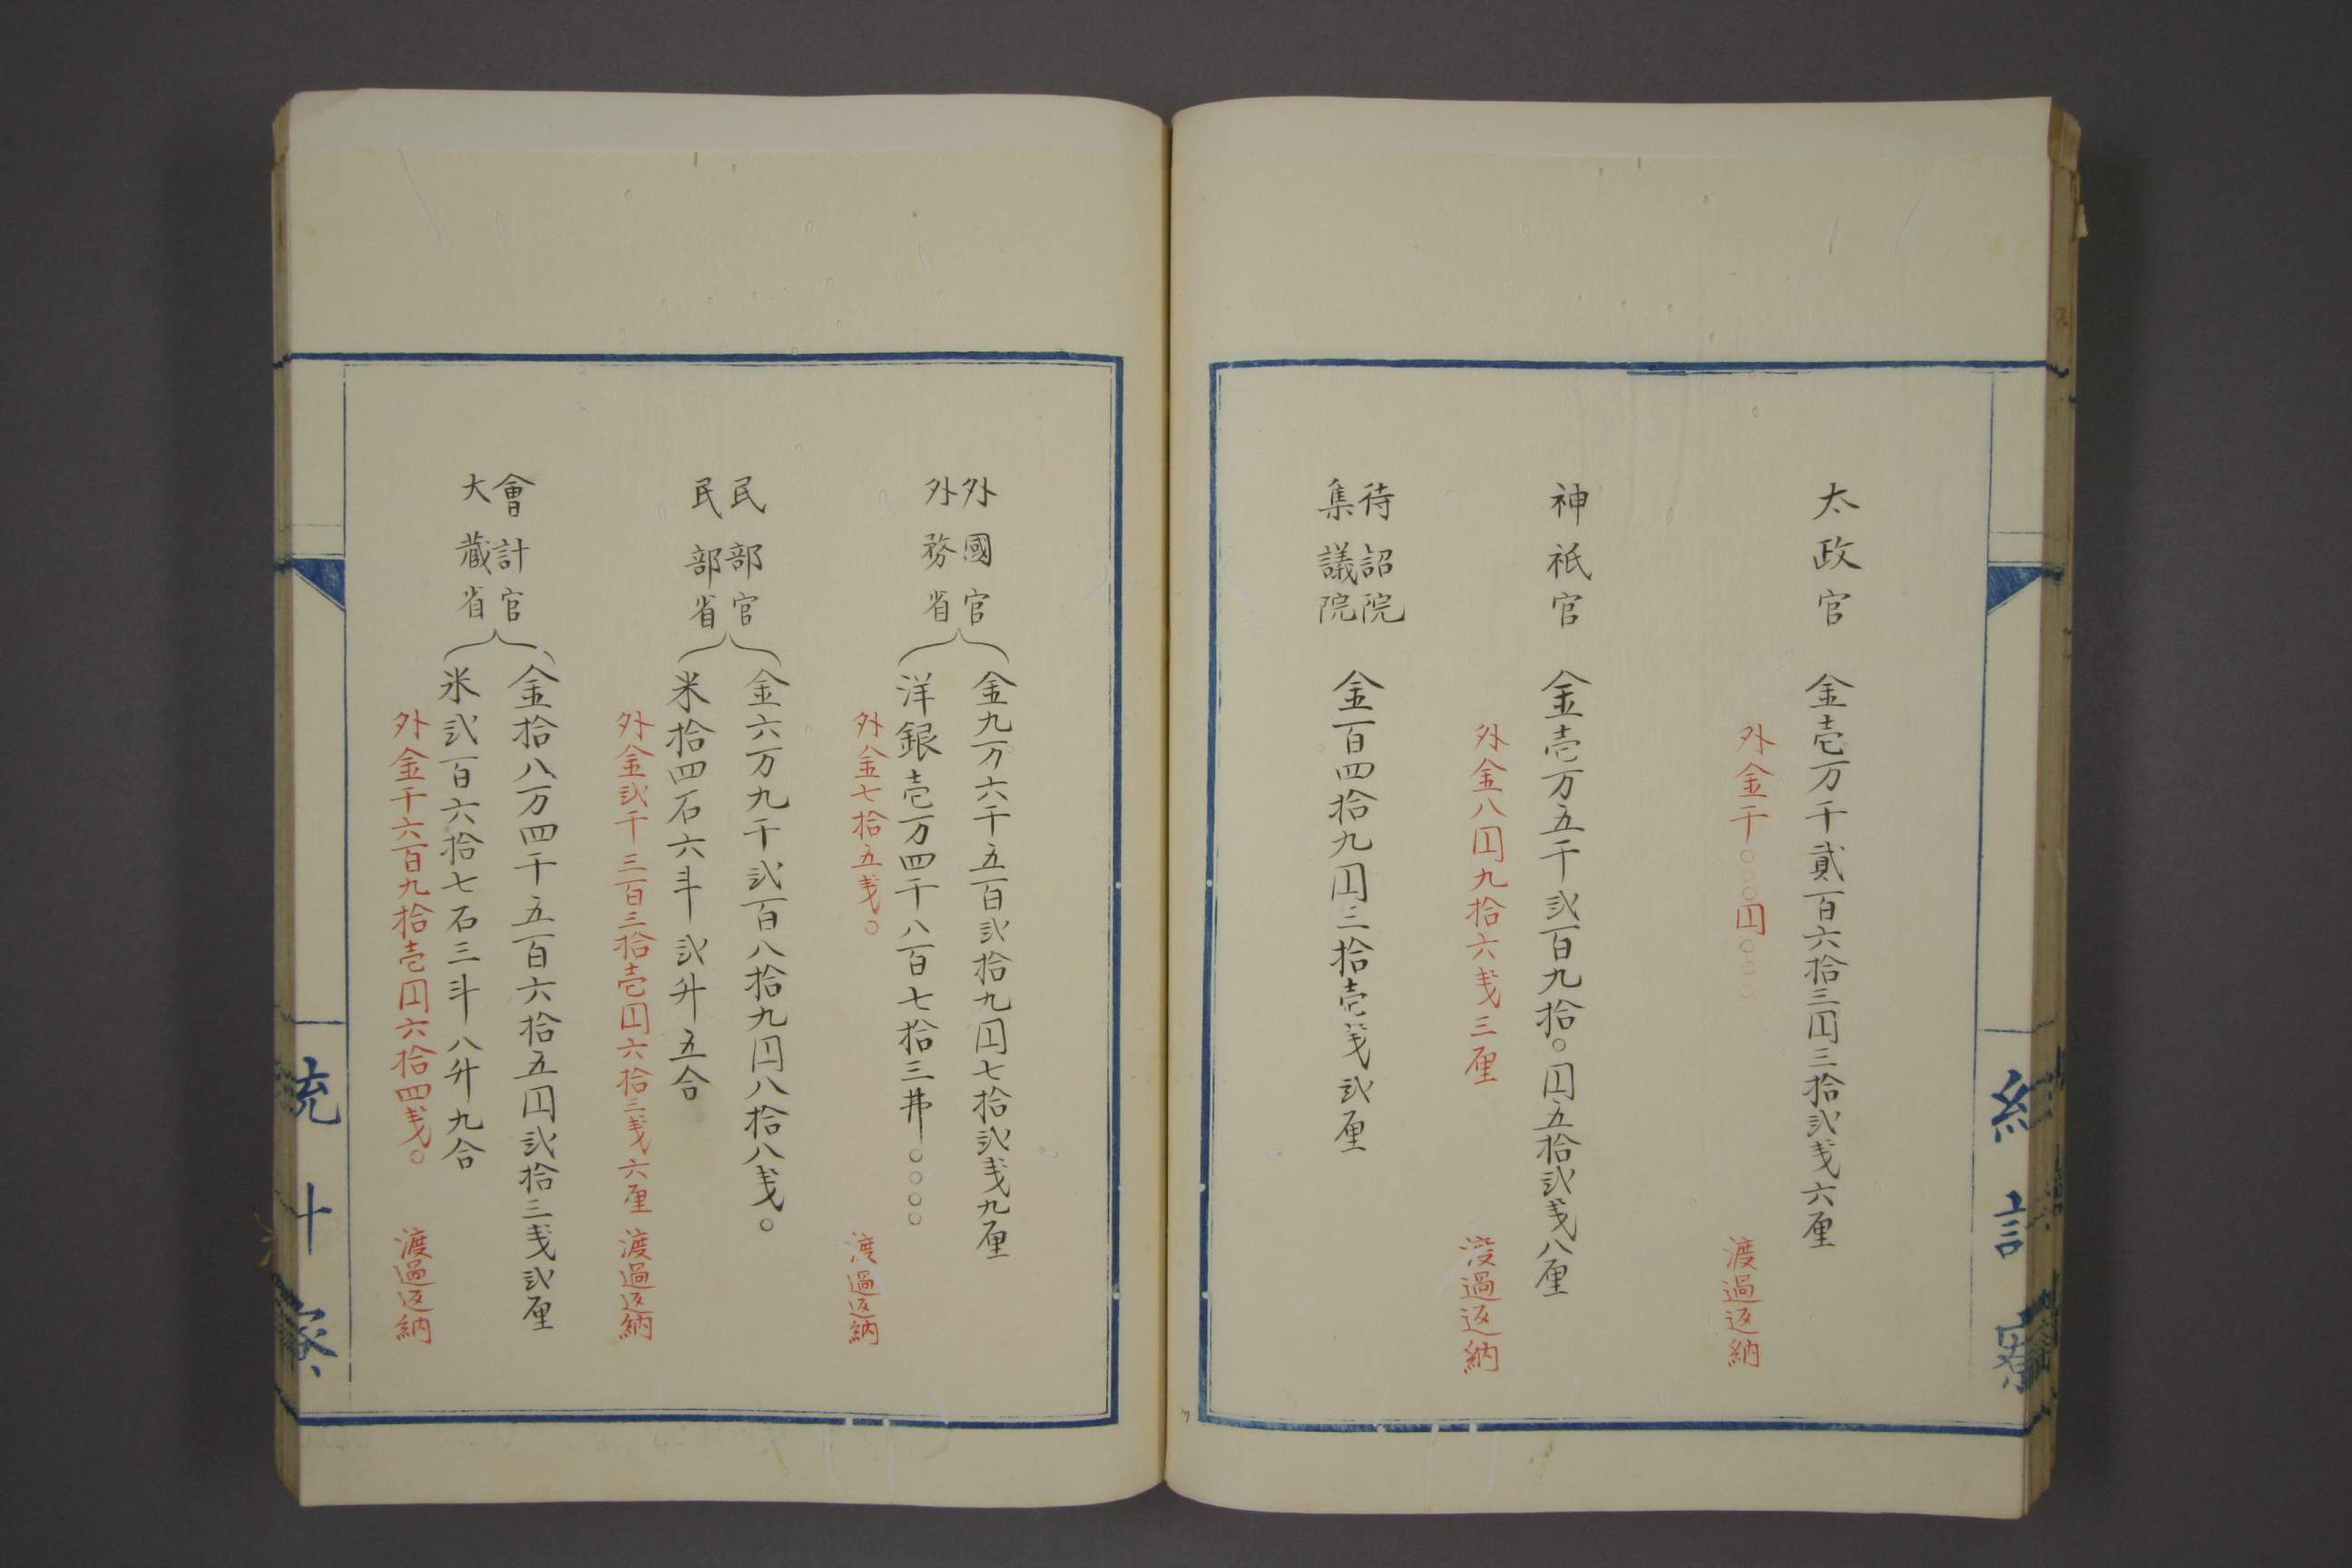 太政官 金壱万千貳百六拾三円三拾弐戔六厘
外金千〇〇〇円〇〇〇 渡過返納
神祇官 金壱万五千弐百九拾〇円五拾弐戔八厘
外金八円九拾六戔三厘 渡過返納
待詔院
集議院 金百四拾九円三拾壱戔弐厘
外國官
外務省
金九万六千五百弐拾九円七拾弐戔九厘
洋銀壱万四千八百七拾三弗〇〇〇〇
外金七拾五戔〇 渡過返納
民部官
民部省
金六万九千弐百八拾九円八拾八戔〇
米拾四石六斗弐升五合
外金弐千三百三拾壱円六拾三戔六厘 渡過返納
會計官
大蔵省
金拾八万四千五百六拾五円弐拾三戔弐厘
米弐百六拾七石三斗八升九合
外金千六百九拾壱円六拾四戔〇 渡過返納